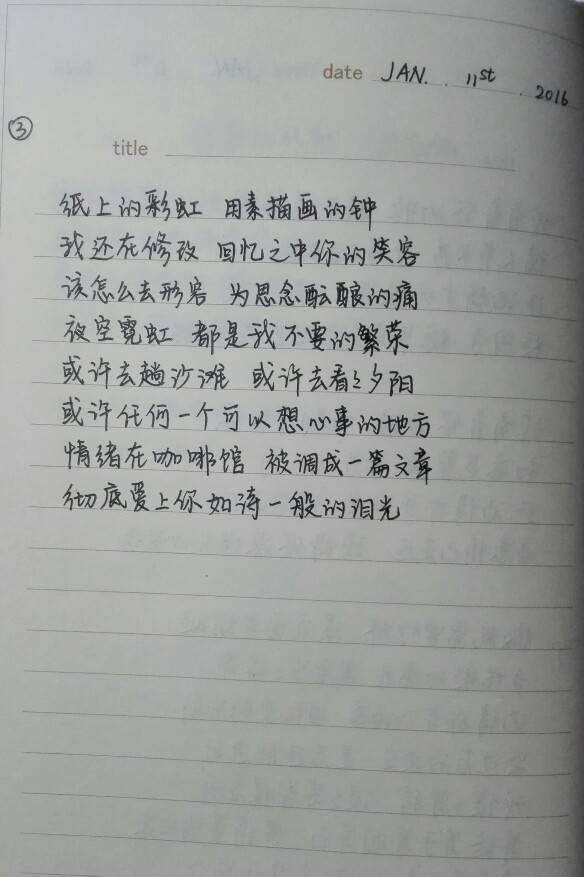 date JAN. 11st. 2016
③
title
纸上的彩虹 用素描画的钟
我还在修改 回忆之中你的笑容
该怎么去形容 为思念酝酿的痛
夜空霓虹 都是我不要的繁荣
或许去趟沙滩 或许去看夕阳
或许任何一个可以想心事的地方
情绪在咖啡馆 被调成一篇文章
彻底爱上你如诗一般的泪光